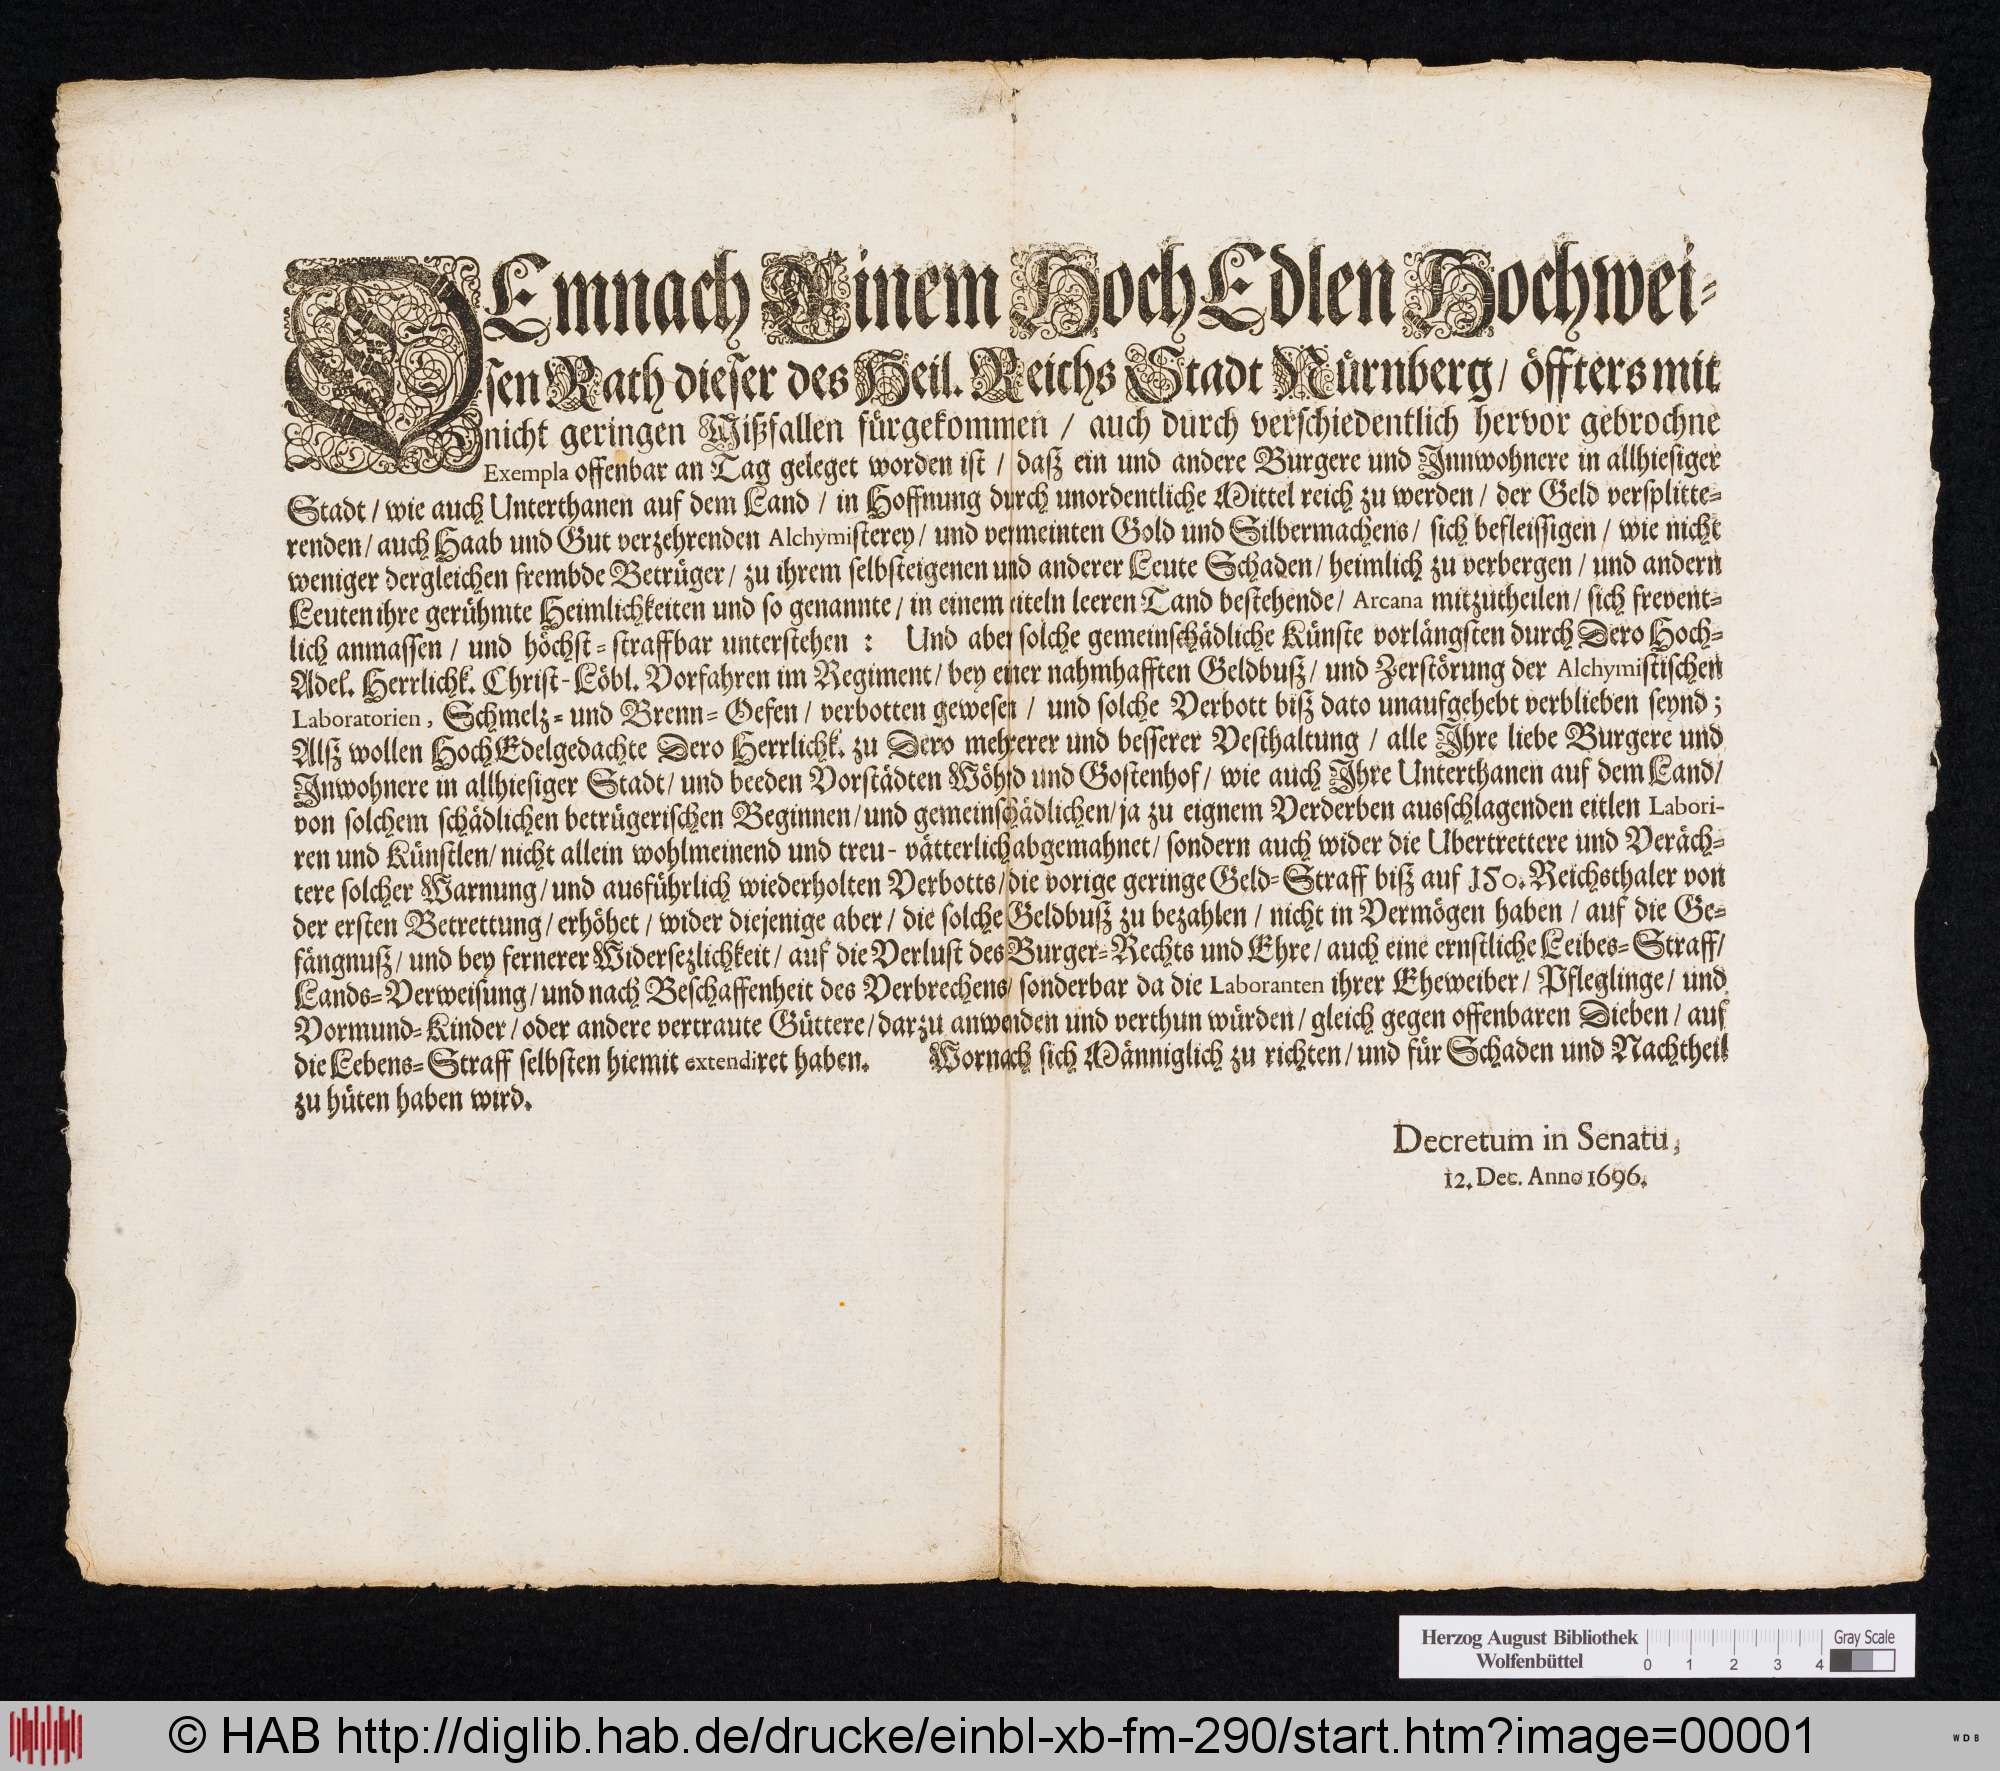 DEmnach Einem HochEdlen Hochwei-
sen Rath dieser des Heil. Reichs Stadt Nürnberg/ öffters mit
nicht geringen Mißfallen fürgekommen / auch durch verschiedentlich hervor gebrochne
Exempla offenbar an Tag geleget worden ist / daß ein und andere Burgere und Innwohnere in allhiesiger
Stadt / wie auch Unterthanen auf dem Land / in Hoffnung durch unordentliche Mittel reich zu werden / der Geld versplitte-
renden / auch Haab und Gut verzehrenden Alchymisterey / und vermeinten Gold und Silbermachens / sich befleissigen / wie nicht
weniger dergleichen frembde Betrüger / zu ihrem selbsteigenen und anderer Leute Schaden / heimlich zu verbergen / und andern
Leuten ihre gerühmte Heimlichkeiten und so genannte / in einem eiteln leeren Tand bestehende / Arcana mitzutheilen / sich frevent-
lich anmassen / und höchst-straffbar unterstehen : Und aber solche gemeinschädliche Künste vorlängsten durch Dero Hoch-
Adel. Herrlichk. Christ-Löbl. Vorfahren im Regiment / bey einer nahmhafften Geldbuß / und Zerstörung der Alchymistischen
Laboratorien, Schmelz- und Brenn-Oefen / verbotten gewesen / und solche Verbott biß dato unaufgehebt verblieben seynd ;
Alß wollen HochEdelgedachte Dero Herrlichk. zu Dero mehrerer und besserer Vesthaltung / alle Ihre liebe Burgere und
Inwohnere in allhiesiger Stadt / und beeden Vorstädten Wöhrd und Gostenhof / wie auch Ihre Unterthanen auf dem Land /
von solchem schädlichen betrügerischen Beginnen / und gemeinschädlichen / ja zu eignem Verderben ausschlagenden eitlen Labori-
ren und Künstlen / nicht allein wohlmeinend und treu-vätterlich abgemahnet / sondern auch wider die Ubertrettere und Veräch-
tere solcher Warnung / und ausführlich wiederholten Verbotts / die vorige geringe Geld-Straff biß auf 150. Reichsthaler von
der ersten Betrettung / erhöhet / wider diejenige aber / die solche Geldbuß zu bezahlen / nicht in Vermögen haben / auf die Ge-
fängnuß / und bey fernerer Widersezlichkeit / auf die Verlust des Burger-Rechts und Ehre / auch eine ernstliche Leibes-Straff /
Lands-Verweisung / und nach Beschaffenheit des Verbrechens / sonderbar da die Laboranten ihrer Eheweiber / Pfleglinge / und
Vormund-Kinder / oder andere vertraute Güttere / darzu anwenden und verthun würden / gleich gegen offenbaren Dieben / auf
die Lebens-Straff selbsten hiemit extendiret haben. Wornach sich Männiglich zu richten / und für Schaden und Nachtheil
zu hüten haben wird.
Decretum in Senatu,
12. Dec. Anno 1696.
Herzog August Bibliothek
Wolfenbüttel
0 1 2 3 4
Gray Scale
© HAB http://diglib.hab.de/drucke/einbl-xb-fm-290/start.htm?image=00001
WDB